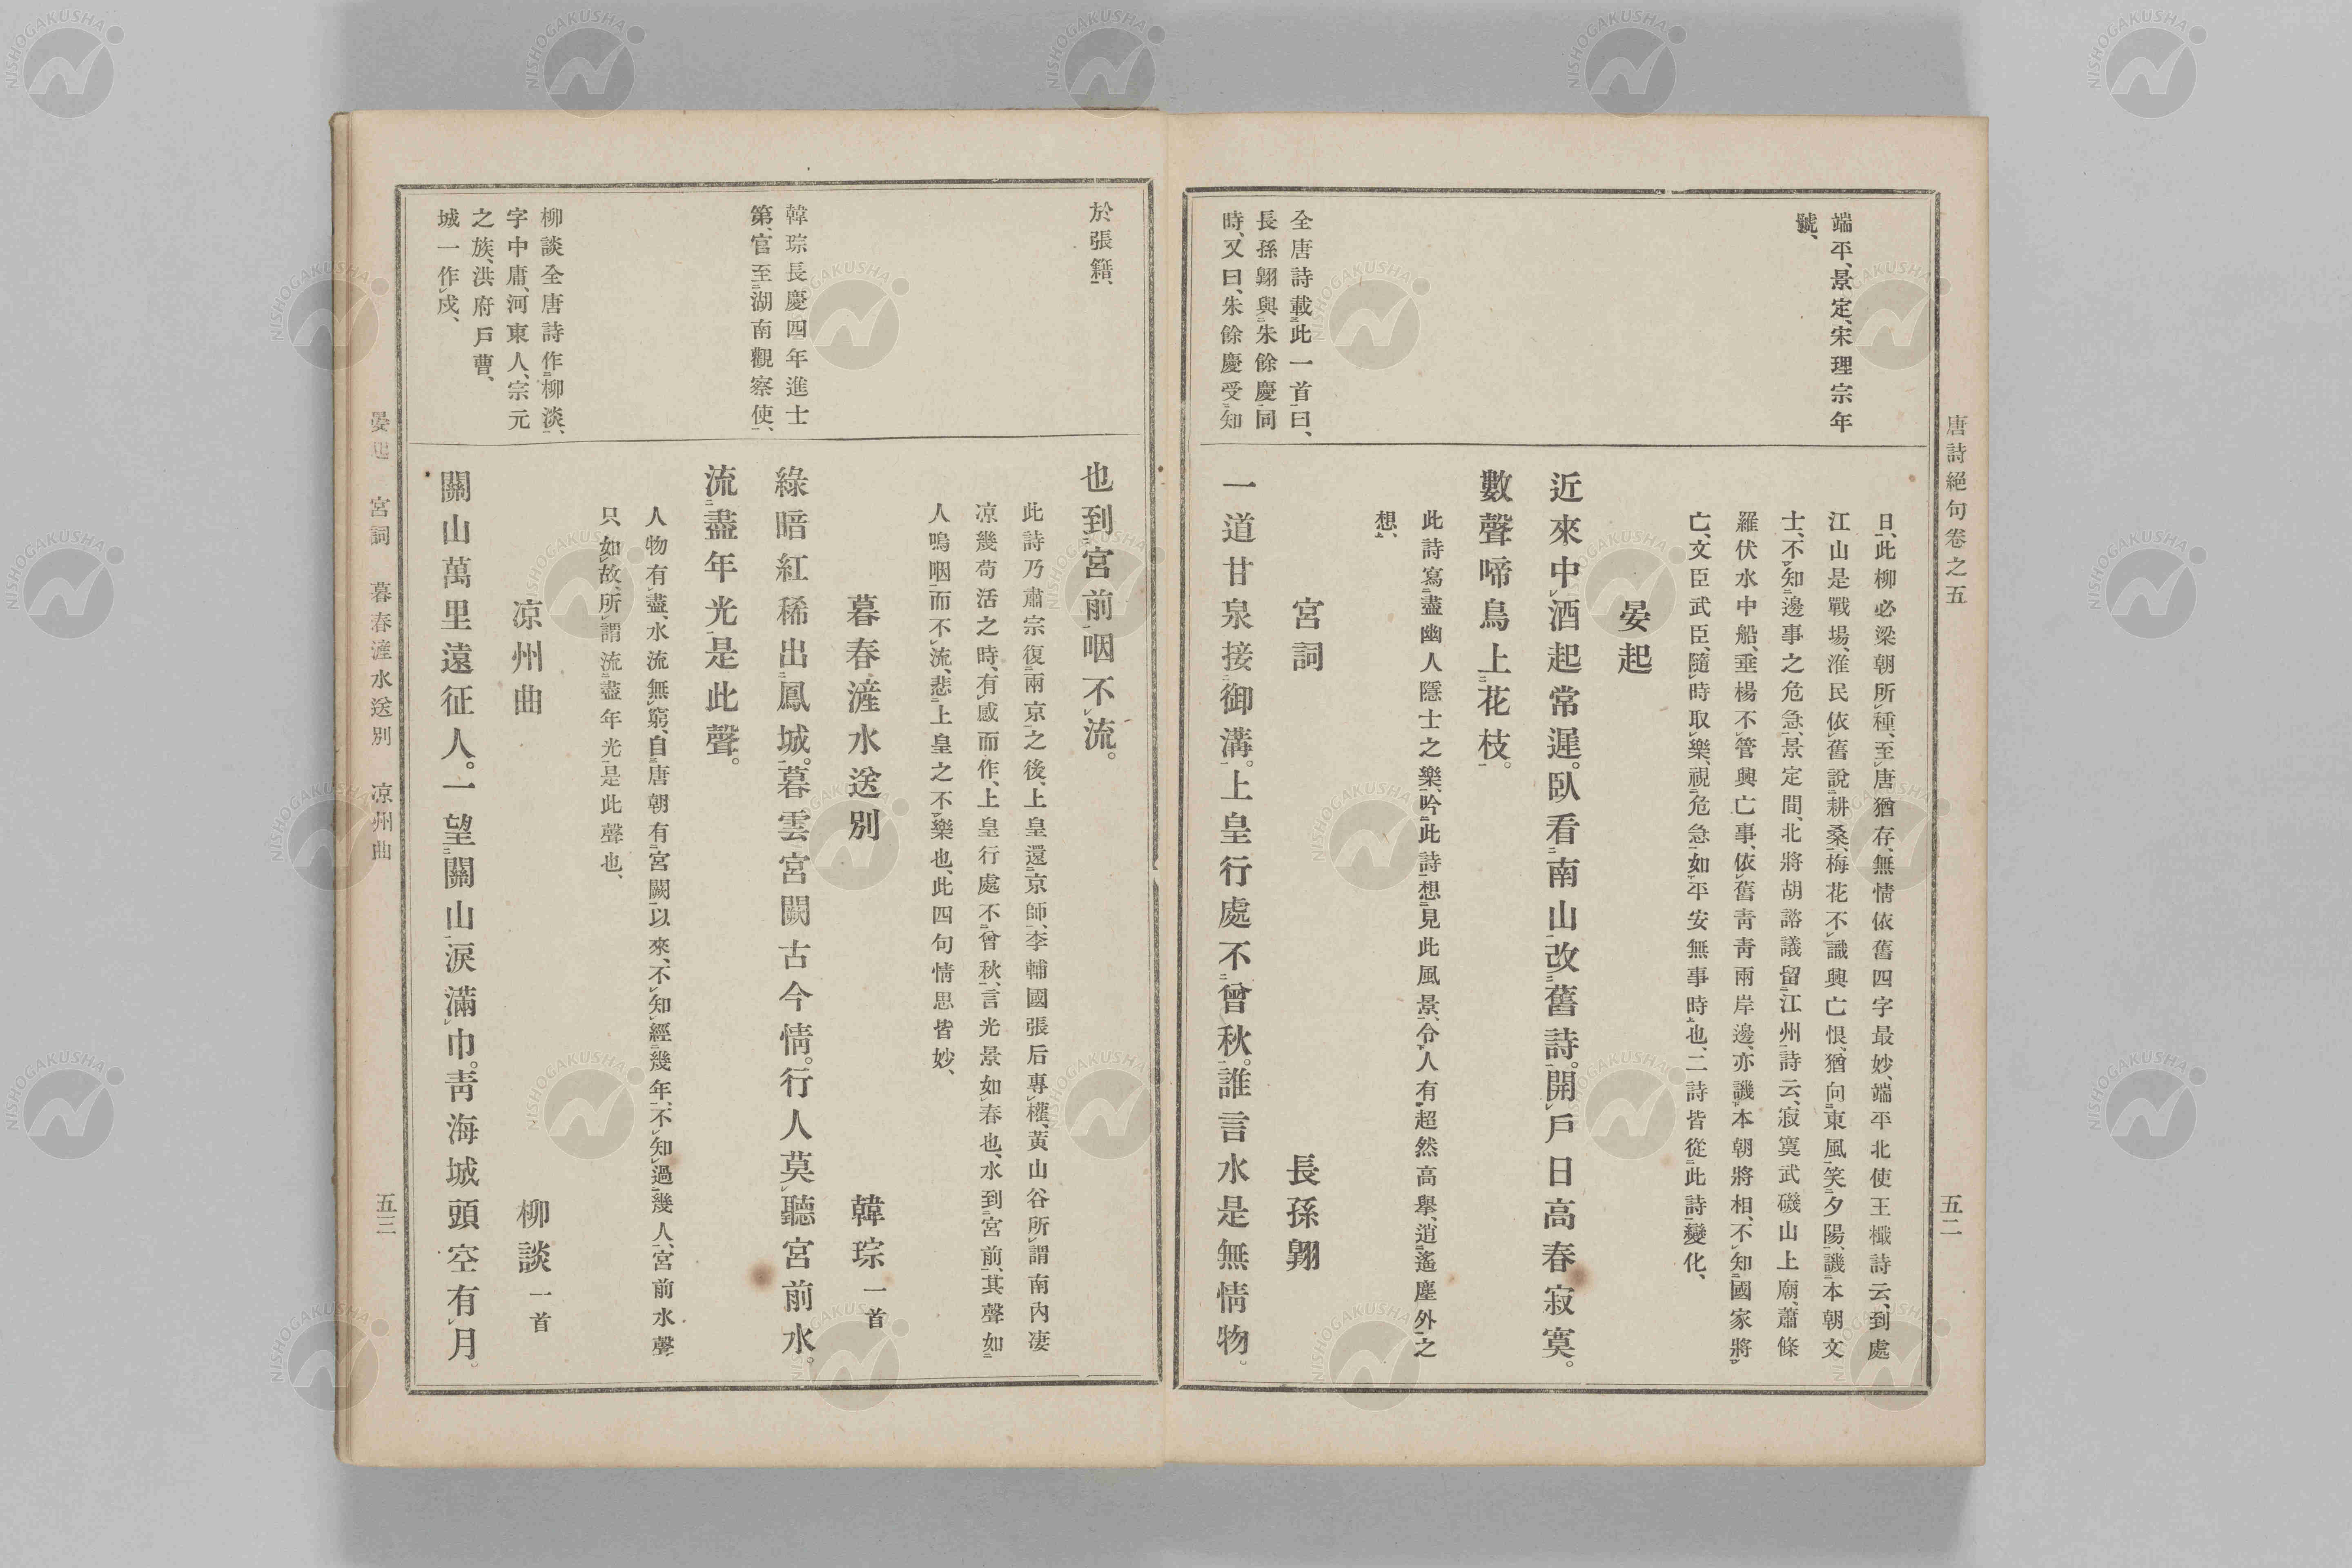 唐詩絕句卷之五
五二
端平、景定、宋理宗年
號、
全唐詩載此一首曰、
長孫翺與朱餘慶同
時、又曰、朱餘慶受知
日、此柳必梁朝所種、至唐猶存、無情依舊四字最妙、端平北使王檝詩云、到處
江山是戰場、淮民依舊說耕桑、梅花不識興亡恨、猶向東風笑夕陽、譏本朝文
士、不知邊事之危急、景定間、北將胡諮議留江州詩云、寂寞武磯山上廟、蕭條
羅伏水中船、垂楊不管興亡事、依舊靑靑兩岸邊、亦譏本朝將相、不知國家將
亡、文臣武臣、隨時取樂、視危急如平安無事時也、二詩皆從此詩變化、
晏起
近來中酒起常遲。臥看南山改舊詩。開戶日高春寂寞。
數聲啼鳥上花枝。
此詩寫盡幽人隱士之樂、吟此詩想見此風景、令人有超然高擧、逍遙塵外之
想、
宮詞　長孫翺
一道甘泉接御溝。上皇行處不曾秋。誰言水是無情物。
於張籍、
韓琮長慶四年進士
第、官至湖南觀察使、
柳談全唐詩作柳淡、
字中庸、河東人、宗元
之族、洪府戶曹、
城一作戍、
也到宮前咽不流。
此詩乃肅宗復兩京之後、上皇還京師、李輔國張后專權、黃山谷所謂南內凄
凉幾苟活之時、有感而作、上皇行處不曾秋、言光景如春也、水到宮前、其聲如
人嗚咽而不流、悲上皇之不樂也、此四句情思皆妙、
暮春滻水送別　韓琮 一首
綠暗紅稀出鳳城。暮雲宮闕古今情。行人莫聽宮前水。
流盡年光是此聲。
人物有盡、水流無窮、自唐朝有宮闕以來、不知經幾年、不知過幾人、宮前水聲
只如故、所謂流盡年光是此聲也、
凉州曲　柳談 一首
關山萬里遠征人。一望關山淚滿巾。靑海城頭空有月。
晏起　宮詞　暮春滻水送別　凉州曲
五三